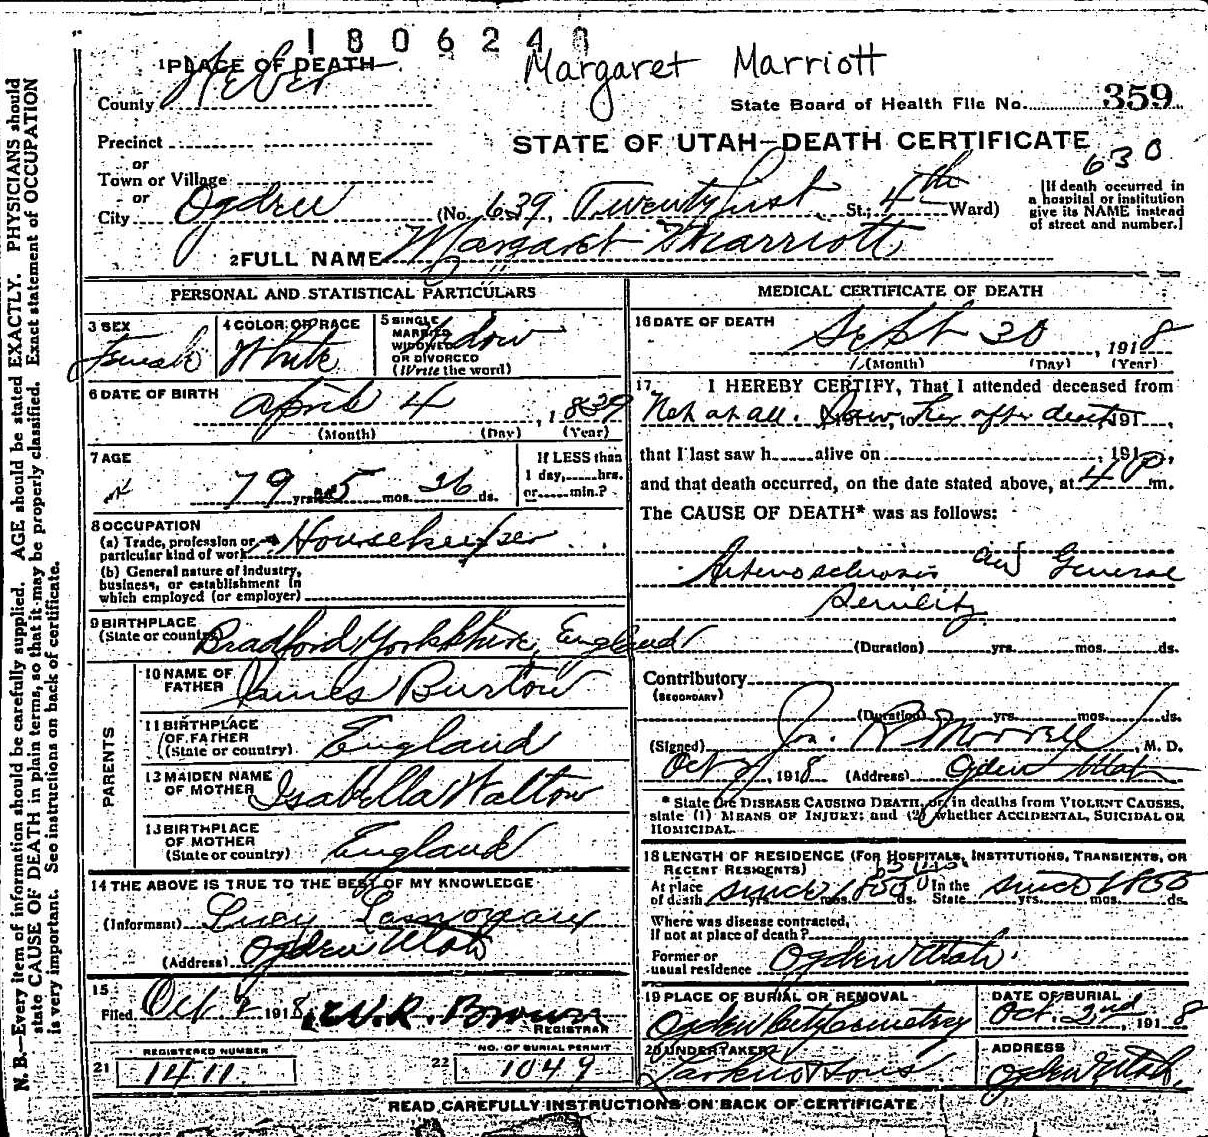 1806248
Margaret Marriott
1 PLACE OF DEATH
County Weber
State Board of Health File No. 359
Precinct
STATE OF UTAH—DEATH CERTIFICATE
630
or
Town or Village
or
City Ogden (No. 639, Twentyfirst St.; 4th Ward)
[If death occurred in a hospital or institution give its NAME instead of street and number.]
2 FULL NAME Margaret Marriott
PERSONAL AND STATISTICAL PARTICULARS
3 SEX Female
4 COLOR OR RACE White
5 SINGLE MARRIED WIDOWED OR DIVORCED (Write the word) Widow
6 DATE OF BIRTH April 4, 1839
(Month) (Day) (Year)
7 AGE
79 yrs. 5 mos. 26 ds.
If LESS than 1 day, hrs. or min.?
8 OCCUPATION
(a) Trade, profession or particular kind of work Housekeeper
(b) General nature of industry, business, or establishment in which employed (or employer)
9 BIRTHPLACE (State or country) Bradford Yorkshire, England
PARENTS
10 NAME OF FATHER James Burton
11 BIRTHPLACE OF FATHER (State or country) England
12 MAIDEN NAME OF MOTHER Isabella Walton
13 BIRTHPLACE OF MOTHER (State or country) England
14 THE ABOVE IS TRUE TO THE BEST OF MY KNOWLEDGE
(Informant) Lucy Lamoreaux
(Address) Ogden Utah
15
Filed Oct 2 1918, W.R. Brown
REGISTRAR
21 REGISTERED NUMBER 1411
22 NO. OF BURIAL PERMIT 1049
MEDICAL CERTIFICATE OF DEATH
16 DATE OF DEATH
Sept 30, 1918
(Month) (Day) (Year)
17 I HEREBY CERTIFY, That I attended deceased from
Not at all. Saw, to her after death 191 ,
that I last saw h alive on , 191 ,
and that death occurred, on the date stated above, at 4 P m.
The CAUSE OF DEATH* was as follows:
Arteriosclerosis and General
Senility
(Duration) yrs. mos. ds.
Contributory
(SECONDARY)
(Duration) yrs. mos. ds.
(Signed) Jos. R. Morrell, M. D.
Oct , 1918 (Address) Ogden Utah
* State the DISEASE CAUSING DEATH, or, in deaths from VIOLENT CAUSES,
state (1) MEANS OF INJURY; and (2) whether ACCIDENTAL, SUICIDAL OR
HOMICIDAL.
18 LENGTH OF RESIDENCE (FOR HOSPITALS, INSTITUTIONS, TRANSIENTS, OR
RECENT RESIDENTS)
At place of death since 1855 yrs. mos. ds. In the State since 1855 yrs. mos. ds.
Where was disease contracted,
If not at place of death?
Former or usual residence Ogden Utah.
19 PLACE OF BURIAL OR REMOVAL Ogden City Cemetery
DATE OF BURIAL Oct. 2nd, 1918
20 UNDERTAKER Larkin & Sons
ADDRESS Ogden Utah.
READ CAREFULLY INSTRUCTIONS ON BACK OF CERTIFICATE.
N. B.—Every item of information should be carefully supplied. AGE should be stated EXACTLY. PHYSICIANS should
state CAUSE OF DEATH in plain terms, so that it may be properly classified. Exact statement of OCCUPATION
is very important. See instructions on back of certificate.